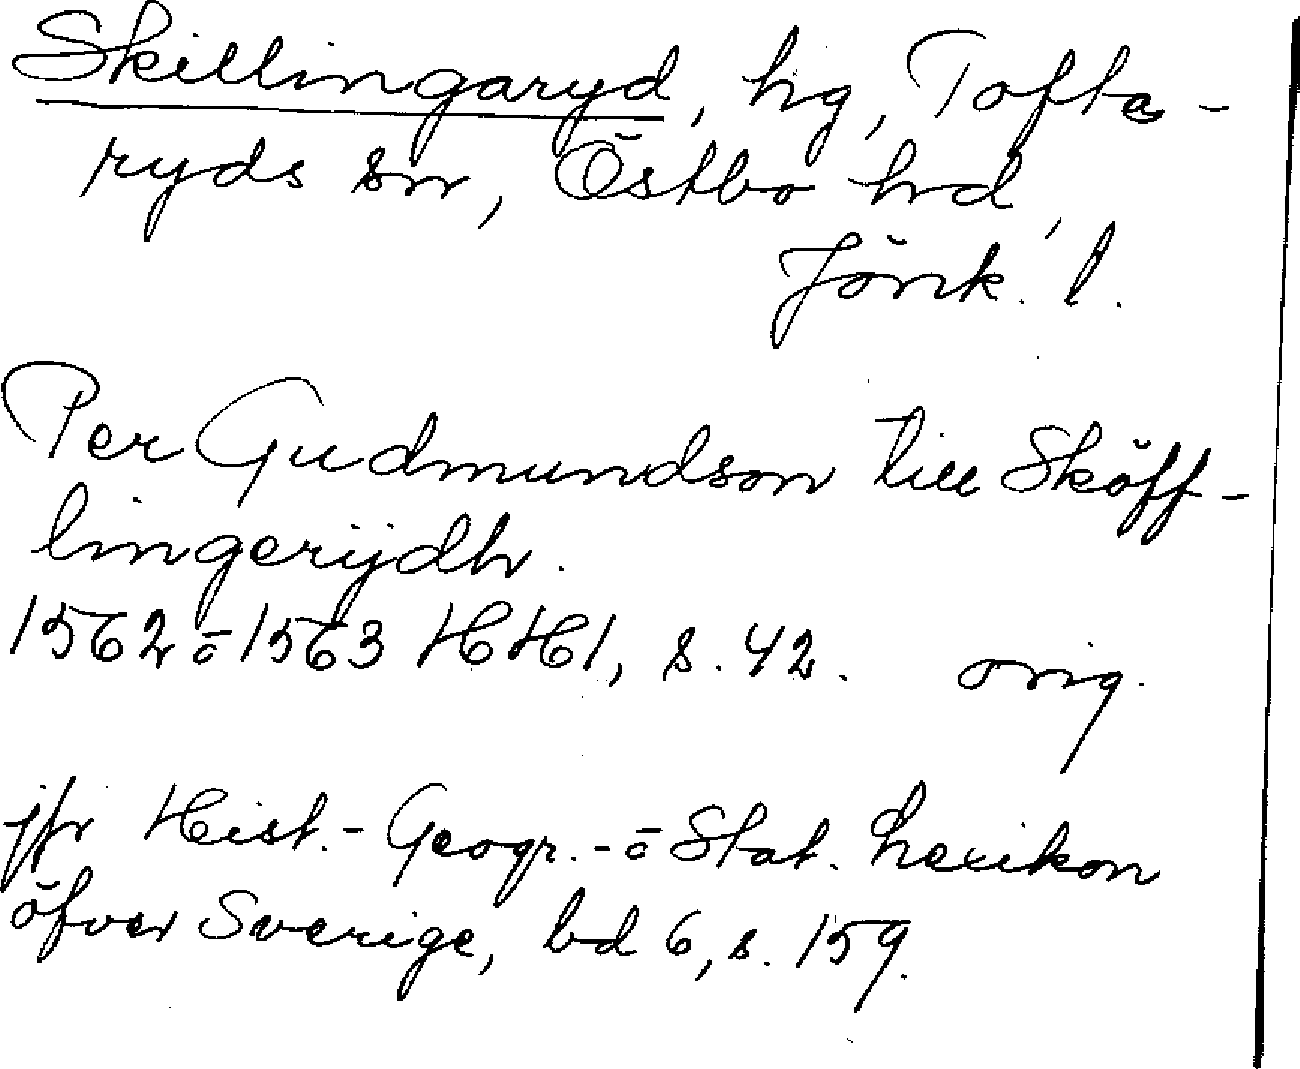 Skillingaryd, hg, Tofta-
ryds sn, Östbo hd,
Jönk. l.
Per Gudmundson till Sköff-
lingerÿdh.
1562 o 1563 HH1, s. 42. orig.
jfr Hist.- Geogr.- o Stat. Lexikon
öfver Sverige, bd 6, s. 159.